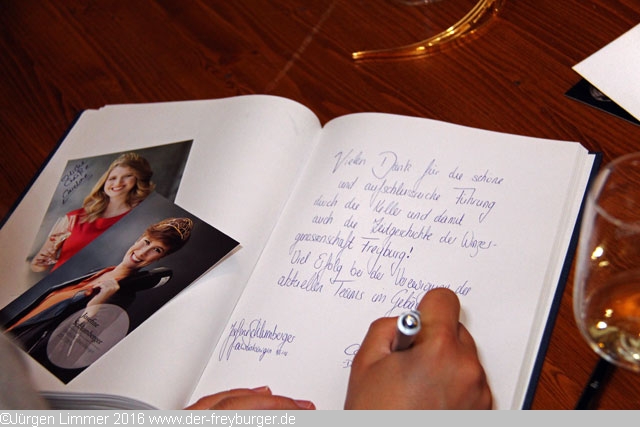 Vielen Dank für die schöne
und aufschlussreiche Führung
durch die Keller und damit
auch die Zeitgeschichte der Winzer-
genossenschaft Freyburg!
Viel Erfolg bei der Vereinigung der
aktuellen Teams im
Schlumberger
©Jürgen Limmer 2016 www.der-freyburger.de